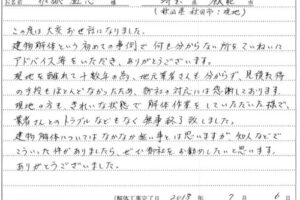 様
(秋田県 秋田市：現地)
この度は大変お世話になりました。
建物解体という初めての事例で何も分からない所をていねいに
アドバイス等をいただき、ありがとうございます。
現地を離れて十数年の為、地元業者さんも分からず、見積依頼
の手段もほとんどなかったため、御社の対応には感謝しております。
現地の方も、きれいな状態で解体作業をしていただいた様で、
業者さんとのトラブルなどもなく無事終了致しました。
建物解体についてはなかなか無い事とは思いますが、知人などで
こういった件がありましたら、ぜひ御社をお勧めしたいと思います。
ありがとうございました。
(解体工事完了日 2018 7 6